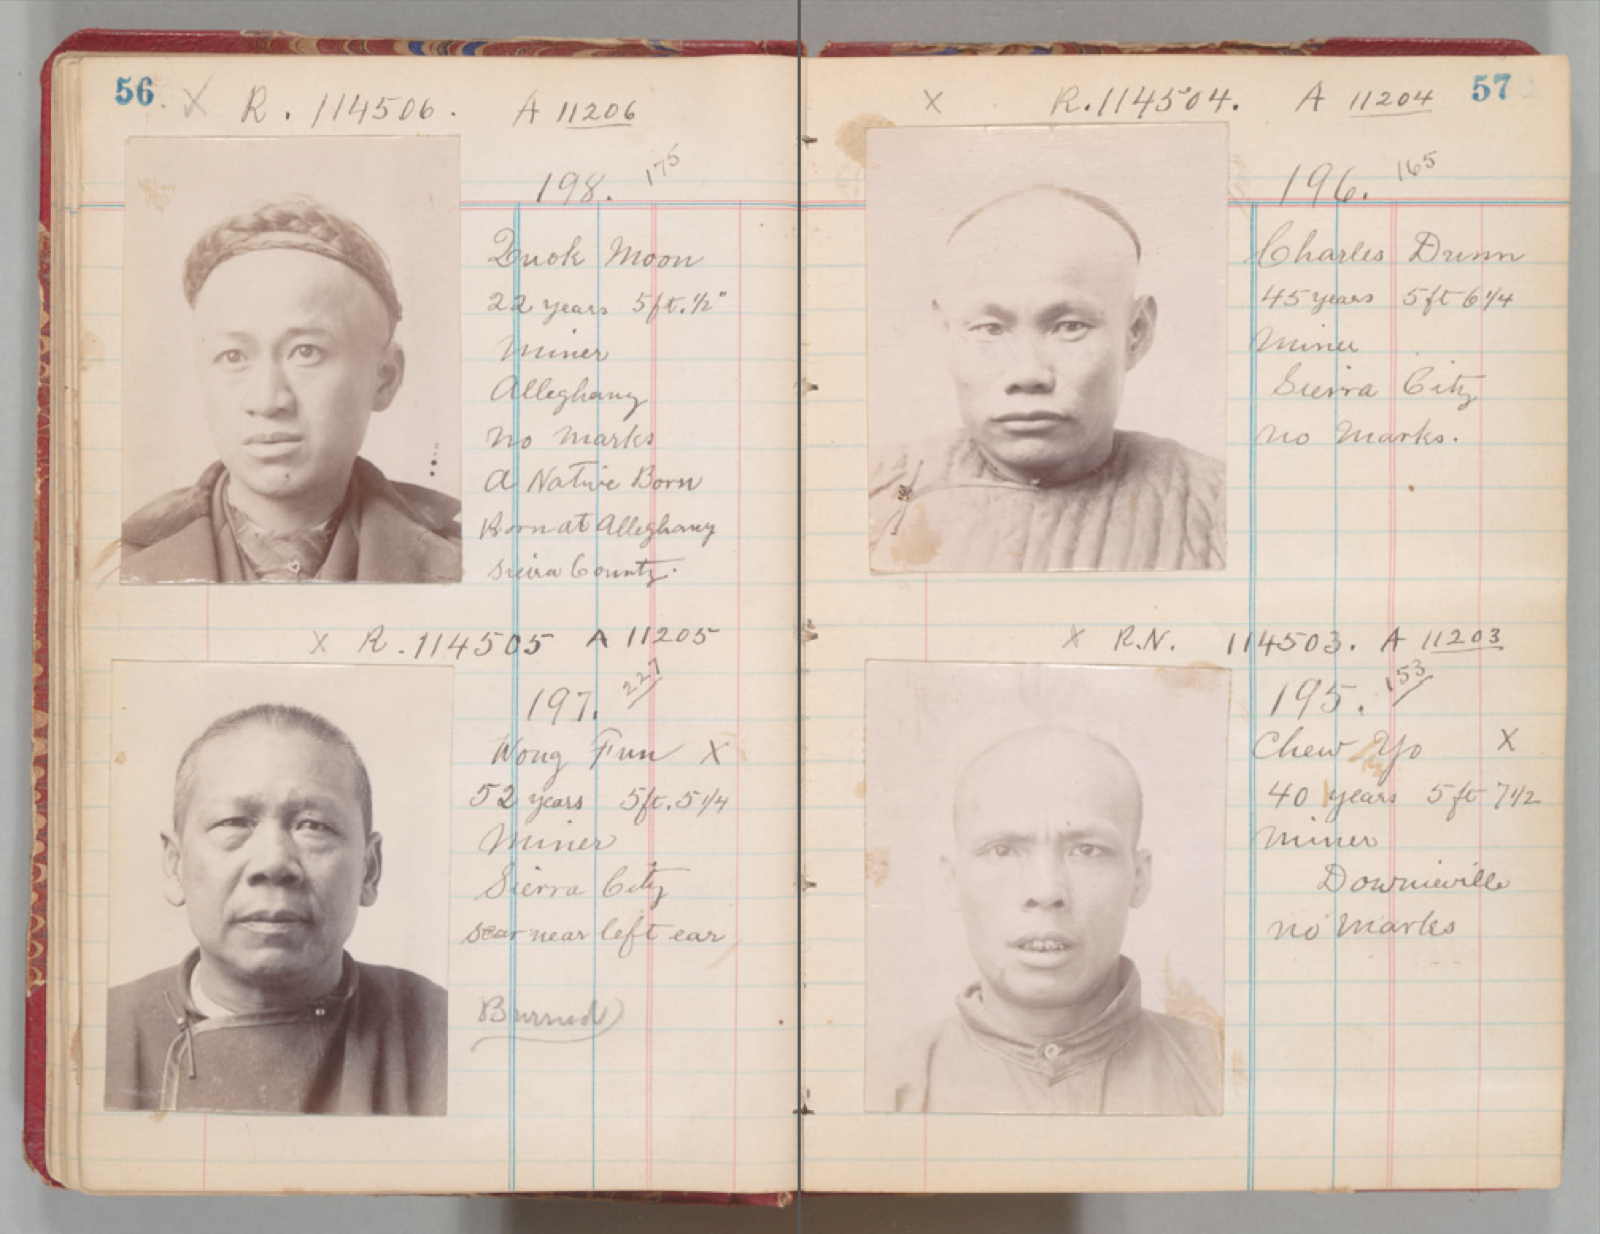 56
X R. 114506. A 11206
198. 175
Quok Moon
22 years 5ft. 1/2"
Miner
Alleghany
no marks
A Native Born
Born at Alleghany
Sierra County.
X R. 114505 A 11205
197. 227
Wong Fun X
52 years 5ft. 5 1/4
Miner
Sierra City
scar near left ear
Burned
57
X R. 114504. A 11204
196. 165
Charles Dunn
45 years 5ft 6 1/4
Miner
Sierra City
no Marks.
X R.N. 114503. A 11203
195. 153
Chew Yo X
40 years 5ft 7 1/2
Miner
Downieville
no Marks